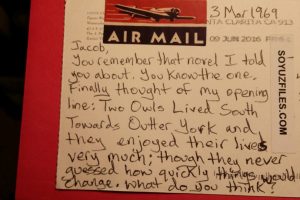 3 Mar 1969
SANTA CLARITA CA 913
AIR MAIL
09 JUN 2016
SOYUZFILES.COM
Jacob,
You remember that novel I told
you about. You know the one,
Finally thought of my opening
line: Two Owls Lived South
Towards Outter York and
they enjoyed their lives
very much; though they never
guessed how quickly things would
change. What do you think?